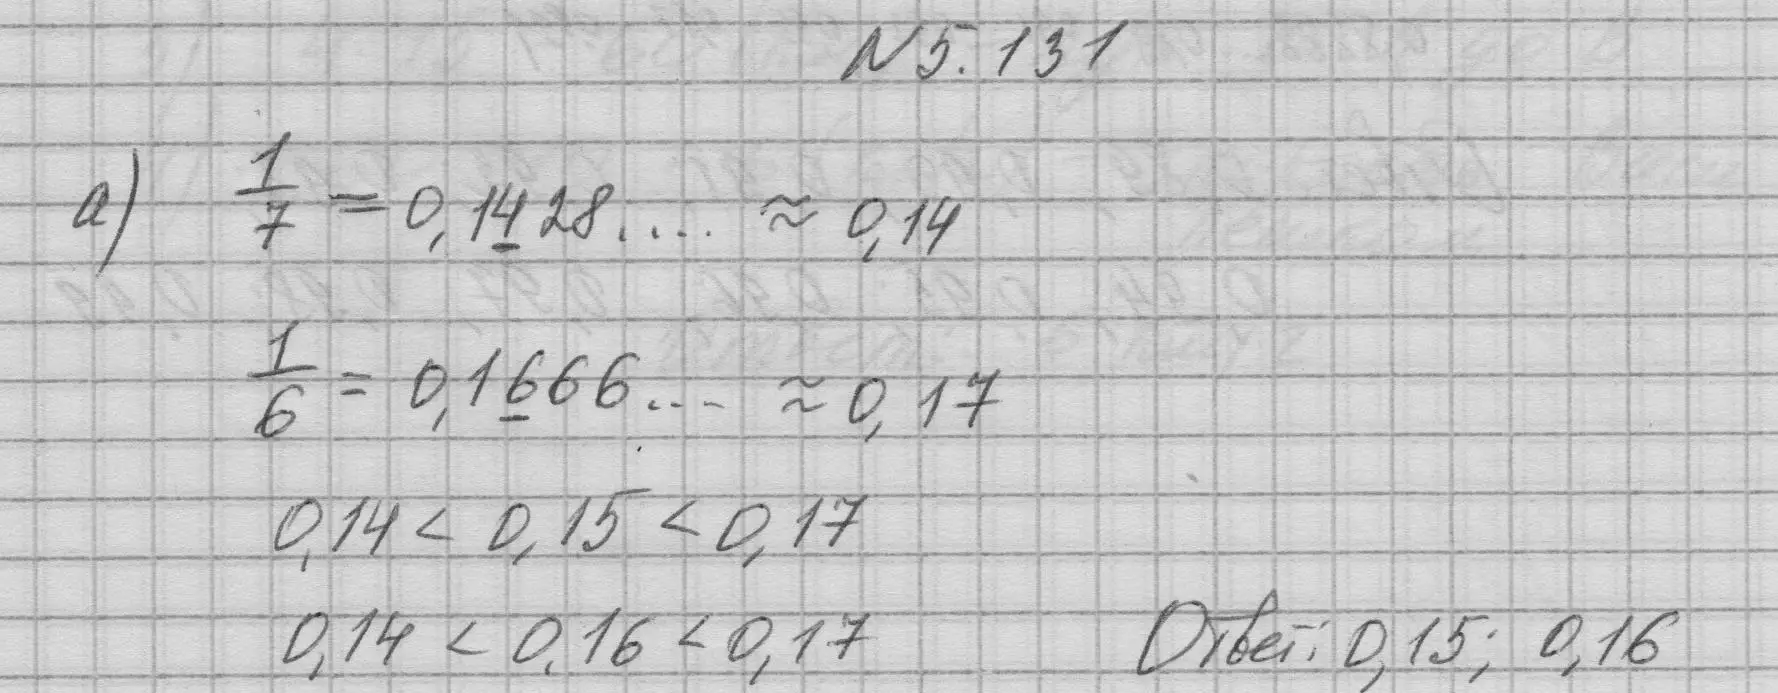 N 5. 131
а) 1/7 = 0,1428.... ≈ 0,14
1/6 = 0,1666... ≈ 0,17
0,14 < 0,15 < 0,17
0,14 < 0,16 < 0,17
Ответ: 0,15; 0,16